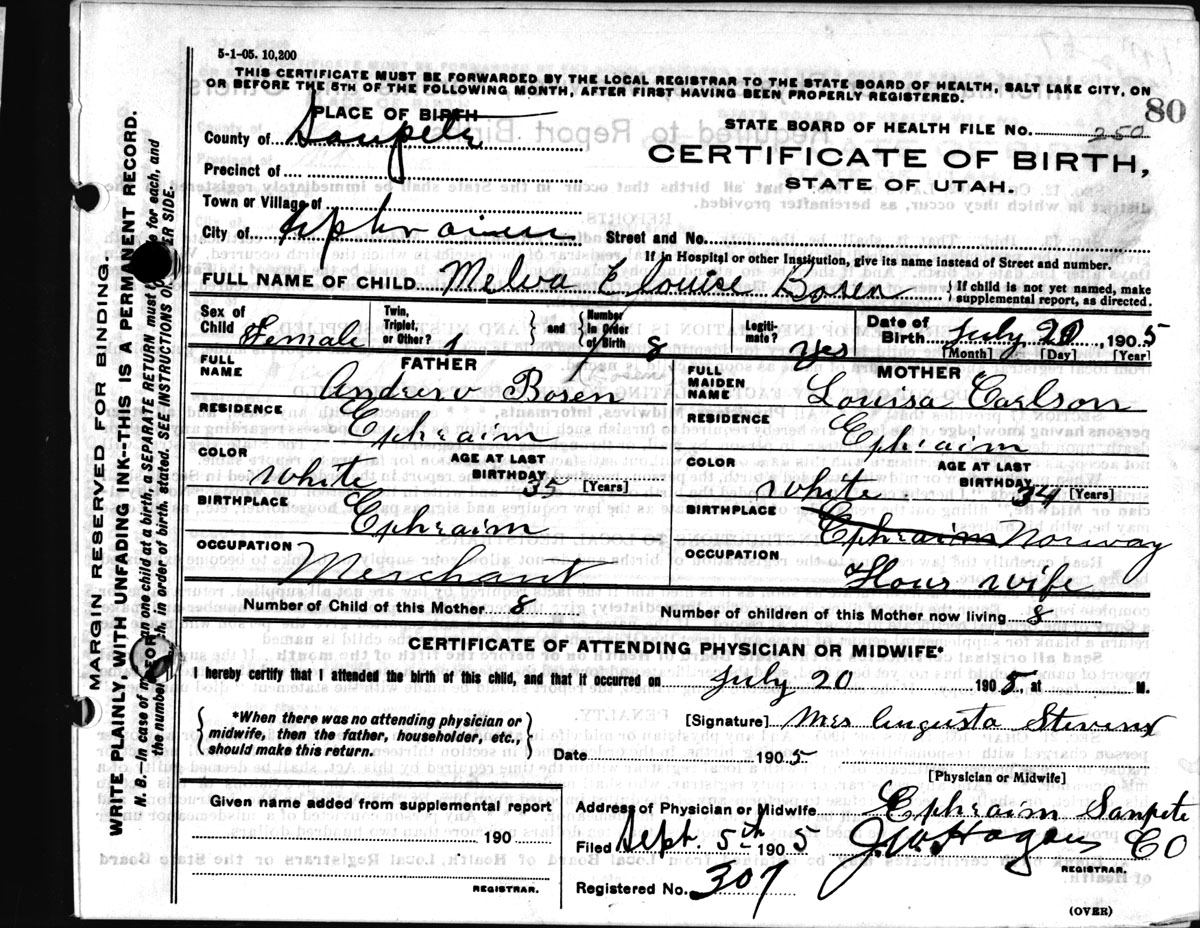 5-1-05. 10,200
THIS CERTIFICATE MUST BE FORWARDED BY THE LOCAL REGISTRAR TO THE STATE BOARD OF HEALTH, SALT LAKE CITY, ON
OR BEFORE THE 5TH OF THE FOLLOWING MONTH, AFTER FIRST HAVING BEEN PROPERLY REGISTERED.
80
PLACE OF BIRTH
STATE BOARD OF HEALTH FILE No. 250
County of Sanpete
CERTIFICATE OF BIRTH,
Precinct of
STATE OF UTAH.
Town or Village of
City of Ephraim Street and No.
If in Hospital or other Institution, give its name instead of Street and number.
FULL NAME OF CHILD Melva Elouise Bosen } If child is not yet named, make supplemental report, as directed.
Sex of Child Female Twin, Triplet, or Other? 1 } and { Number in Order of Birth 8 Legitimate? yes Date of Birth July 20, 1905
[Month] [Day] [Year]
FATHER
FULL NAME Andrew Bosen
RESIDENCE Ephraim
COLOR white AGE AT LAST BIRTHDAY 35 [Years]
BIRTHPLACE Ephraim
OCCUPATION Merchant
MOTHER
FULL MAIDEN NAME Louisa Carlson
RESIDENCE Ephraim
COLOR white AGE AT LAST BIRTHDAY 34 [Years]
BIRTHPLACE Ephraim Norway
OCCUPATION Hous wife
Number of Child of this Mother 8 Number of children of this Mother now living 8
CERTIFICATE OF ATTENDING PHYSICIAN OR MIDWIFE*
I hereby certify that I attended the birth of this child, and that it occurred on July 20 1905, at M.
{ *When there was no attending physician or midwife, then the father, householder, etc., should make this return. }
[Signature] Mrs Augusta Stevens
Date 1905
[Physician or Midwife]
Given name added from supplemental report
190
REGISTRAR.
Address of Physician or Midwife Ephraim Sanpete CO
Filed Sept. 5th 1905
REGISTRAR.
Registered No. 307
(OVER)
MARGIN RESERVED FOR BINDING.
WRITE PLAINLY, WITH UNFADING INK--THIS IS A PERMANENT RECORD.
N. B.—In case of more than one child at a birth, a SEPARATE RETURN must be made for each, and
the number of each, in order of birth, stated. SEE INSTRUCTIONS ON OTHER SIDE.